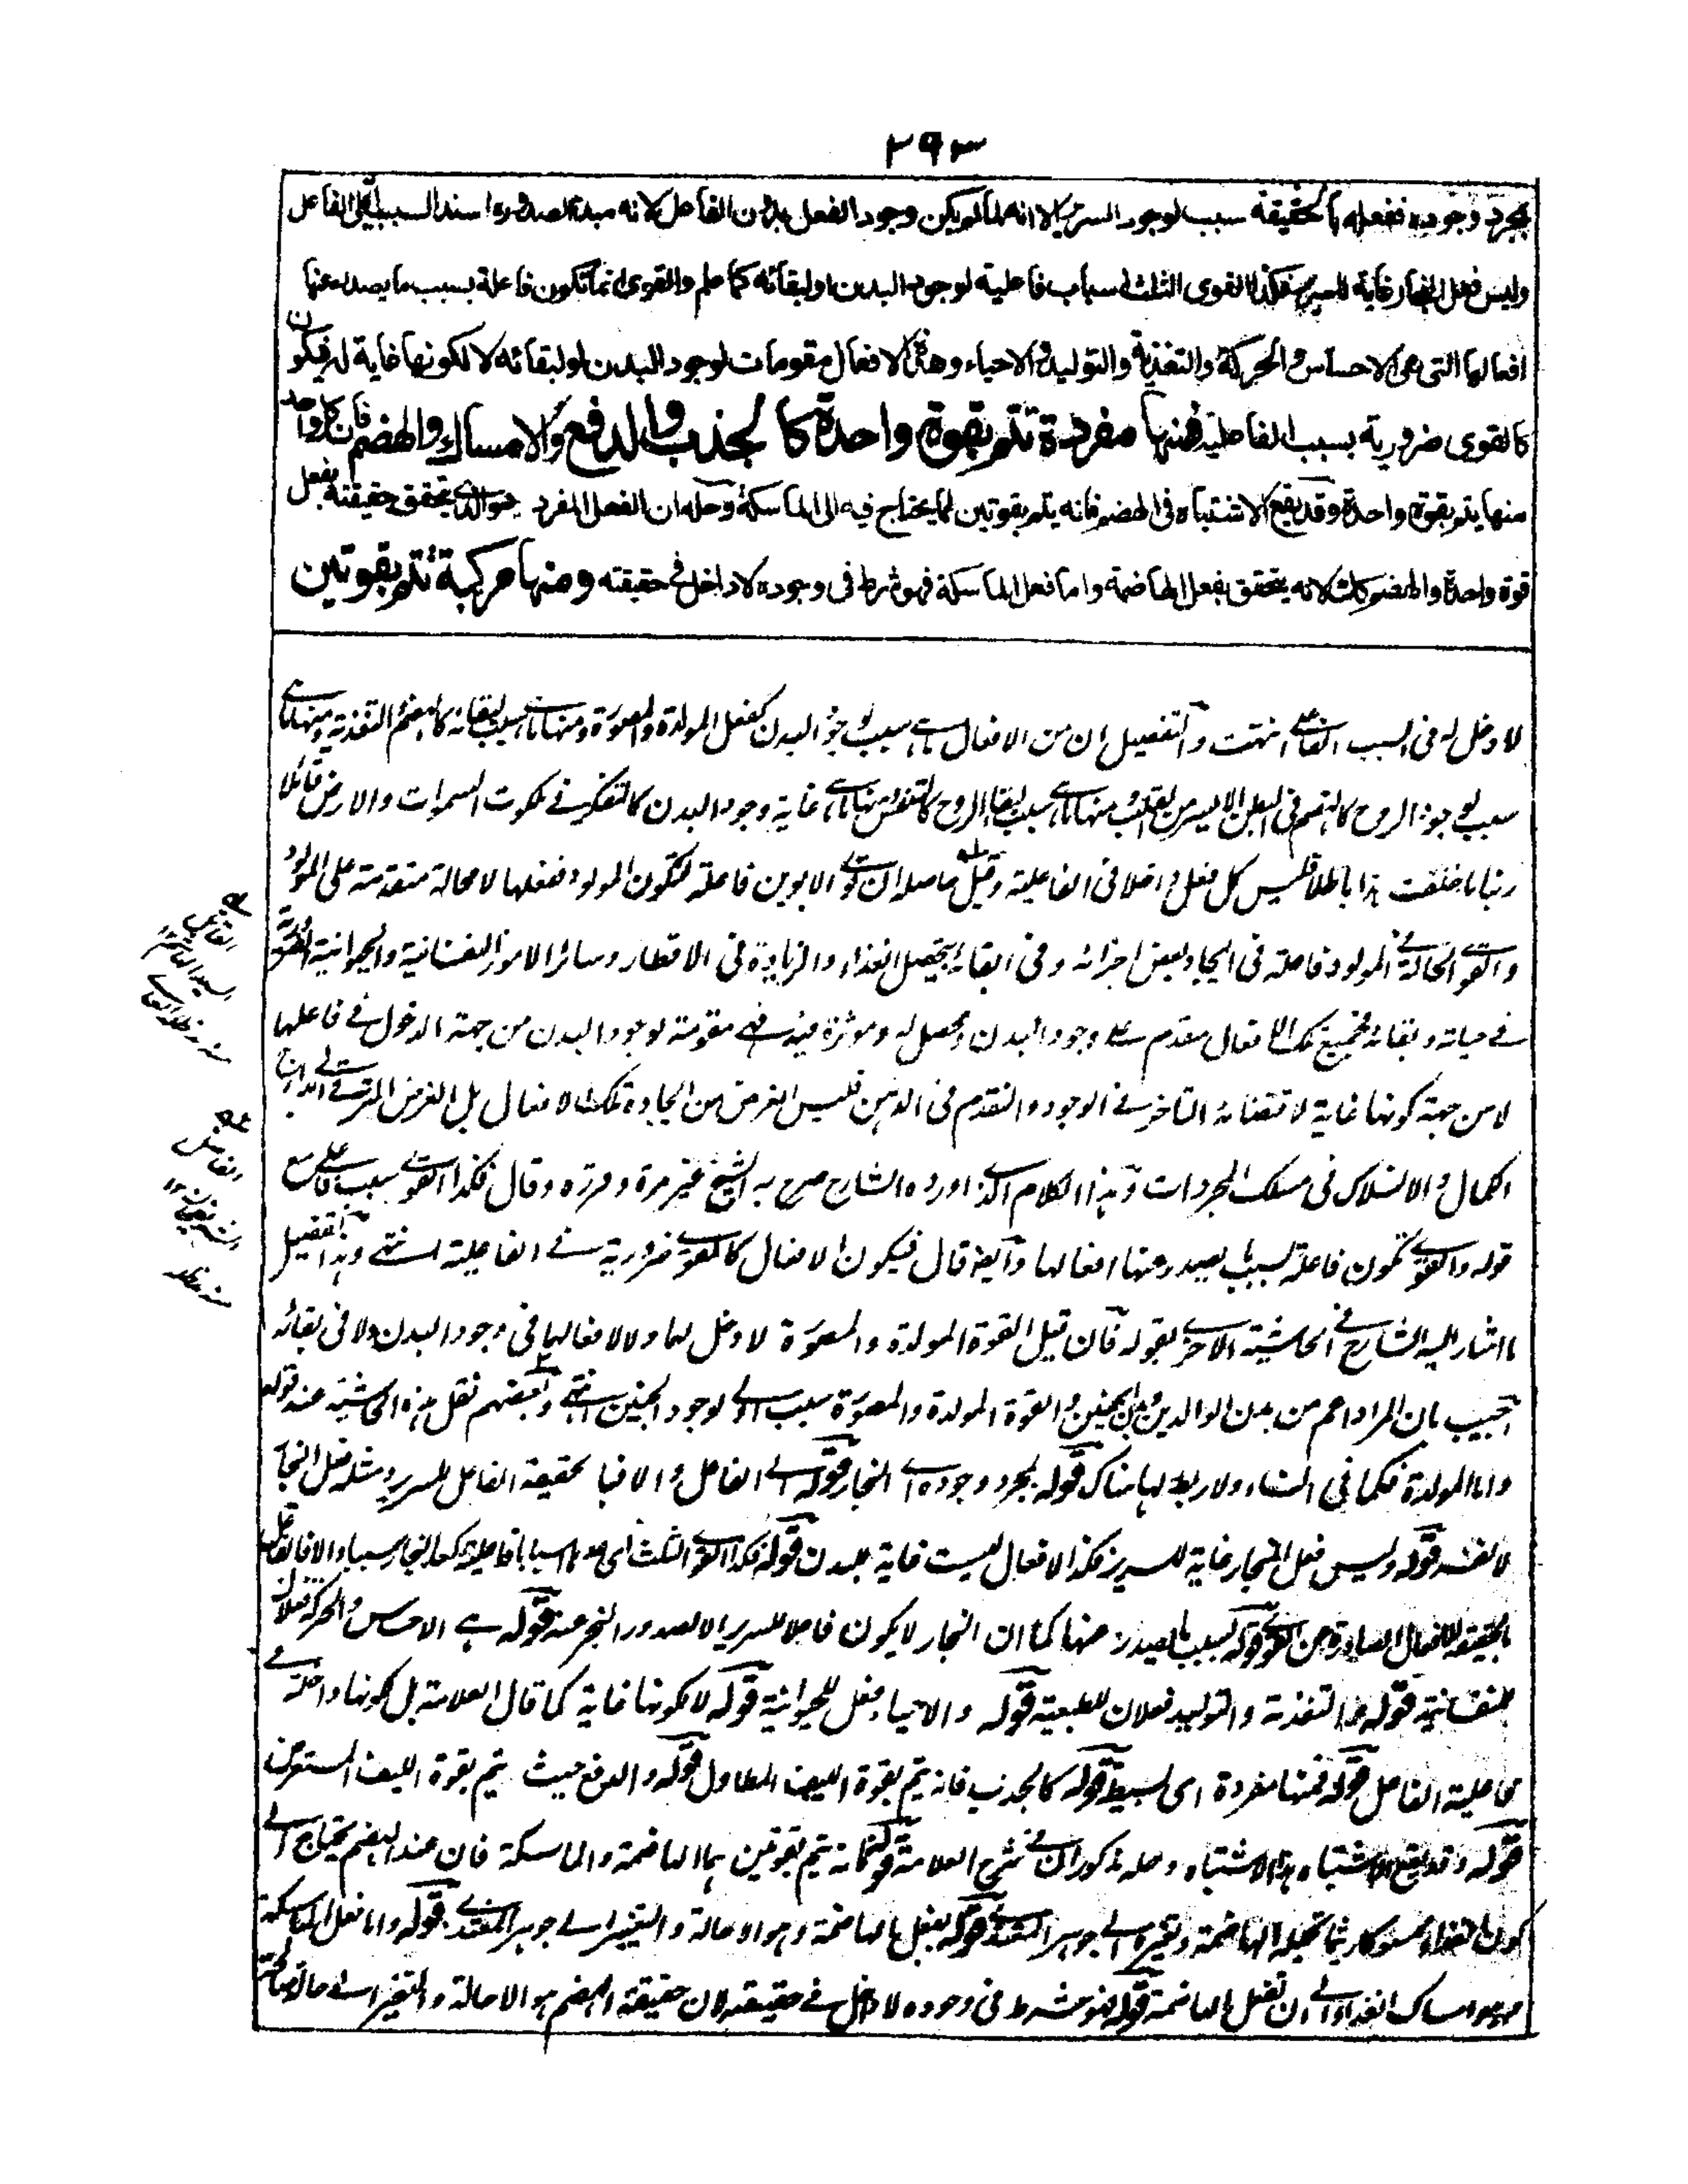 ٢٩٣
بمجرد وجوده ففعله بالحقيقة سبب لوجود السرير الا انه لما لم يكن وجود الفعل بدون الفاعل لانه مبدء لصدوره اسند السببية الى الفاعل
وليس فعل النجار غاية للسرير فكذا القوى الثلث اسباب فاعلية لوجود البدن او لبقائه كما علم والقوى انما تكون فاعلة بسبب ما يصدر عنها
افعالها التى هى الاحساس والحركة والتغذية والتوليد والاحياء وهذه الافعال مقومات لوجود البدن او لبقائه لا لكونها غاية له فيكون
كالقوى ضرورية بسبب الفاعلية فمنها مفردة تتم بقوة واحدة كالجذب والدفع والامساك والهضم فان كل واحد
منها يتم بقوة واحدة وقد يقع الاشتباه فى الهضم فانه يتم بقوتين لما يحتاج فيه الى الماسكة وحله ان الفعل المفرد هو الذى يتحقق حقيقته بفعل
قوة واحدة والهضم كذلك لانه يتحقق بفعل الهاضمة واما فعل الماسكة فهو شرط فى وجوده لا داخل فى حقيقته ومنها مركبة تتم بقوتين
لا دخل له فى السبب الفاعلى انتهت والتفصيل ان من الافعال ما هى سبب لوجود البدن كفعل المولدة والمصورة ومنها ما هى سبب لبقائه كالهضم والتغذية ومنها ما هى
سبب لوجود الروح كالهضم فى البطن الايسر من القلب ومنها ما هى سبب لبقاء الروح كالتنفس ومنها ما هى غاية وجود البدن كالتفكر فى ملكوت السموات والارض قائلا
ربنا ما خلقت هذا باطلا فليس كل فعل داخلا فى الفاعلية وقيل حاصله ان قوى الابوين فاعلة لتكون المولود ففعلها لا محالة متقدمة على المولود
والقوى الحالة فى المولود فاعلة فى ايجاد بعض اجزائه وفى ابقائه بتحصيل الغذاء والزيادة فى الاقطار وسائر الامور النفسانية والحيوانية الضرورية
فى حياته وبقائه فجميع تلك الافعال مقدم على وجود البدن ومحصل له وموثرة فيه فهى مقومة لوجود البدن من جهة الدخول فى فاعلها
لا من جهة كونها غاية لاقتضائه التاخر فى الوجود والتقدم فى الذهن فليس الغرض من ايجاده تلك الافعال بل الغرض الترقى الى مدارج
الكمال والانسلاك فى مسلك المجردات وهذا الكلام الذى اورده الشارح صرح به الشيخ غير مرة وقرره وقال فكذا القوى سبب فاعلى مع
قوله والقوى تكون فاعلة بسبب ما يصدر عنها افعالها وايضا قال فيكون الافعال كالقوى ضرورية فى الفاعلية انتهى وهذا تفصيل
ما اشار اليه الشارح فى الحاشية الاخرى بقوله فان قيل القوة المولدة والمصورة لا دخل لهما ولا لافعالهما فى وجود البدن ولا فى بقائه
اجيب بان المراد اعم من بدن الوالدين وبدن الجنين والقوة المولدة والمصورة سبب اولى لوجود الجنين انتهى وبعضهم نقل هذه الحاشية عند قوله
واما المولدة فكما فى النساء ولا ربط لها هناك قوله بمجرد وجوده اى النجار قوله الى الفاعل والا فبالحقيقة الفاعل للسرير مثله فعل النجار
لا نفسه قوله وليس فعل النجار غاية للسرير فكذا الافعال ليست غاية للبدن قوله فكذا القوى الثلث اى هى اسبابا فاعلية كالنجار سببا والا فالفاعل
بالحقيقة الافعال الصادرة من القوى قوله بسبب ما يصدر عنها كما ان النجار لا يكون فاعلا للسرير الا لصدور النجر عنه قوله هى الاحساس والحركة فعلان
للنفسانية قوله والتغذية والتوليد فعلان للطبعية قوله والاحياء فعل للحيوانية قوله لا لكونها غاية كما قال العلامة بل لكونها داخلة فى
فاعلية الفاعل قوله فمنها مفردة اى بسيطة قوله كالجذب فانه يتم بقوة الليف المطاول قوله والدفع حيث يتم بقوة الليف المستعرض
قوله وقد يقع الاشتباه هذا الاشتباه وحله مذكوران فى شرح العلامة قوله فانه يتم بقوتين هما الهاضمة والماسكة فان عند الهضم يحتاج الى
كون الغذاء ممسوكا ريثما تحيله الهاضمة وتغيره الى جوهر المغتذى قوله بفعل الهاضمة وهو احالة والتغير الى جوهر المغتذى قوله واما فعل الماسكة
وهو امساك الغذاء الى ان تفعل الهاضمة قوله فهو شرط فى وجوده لا داخل فى حقيقته لان حقيقة الهضم هو الاحالة والتغير الى حالة صالحة
الفاضل
مد ظله العالى
الفاضل
مد ظله